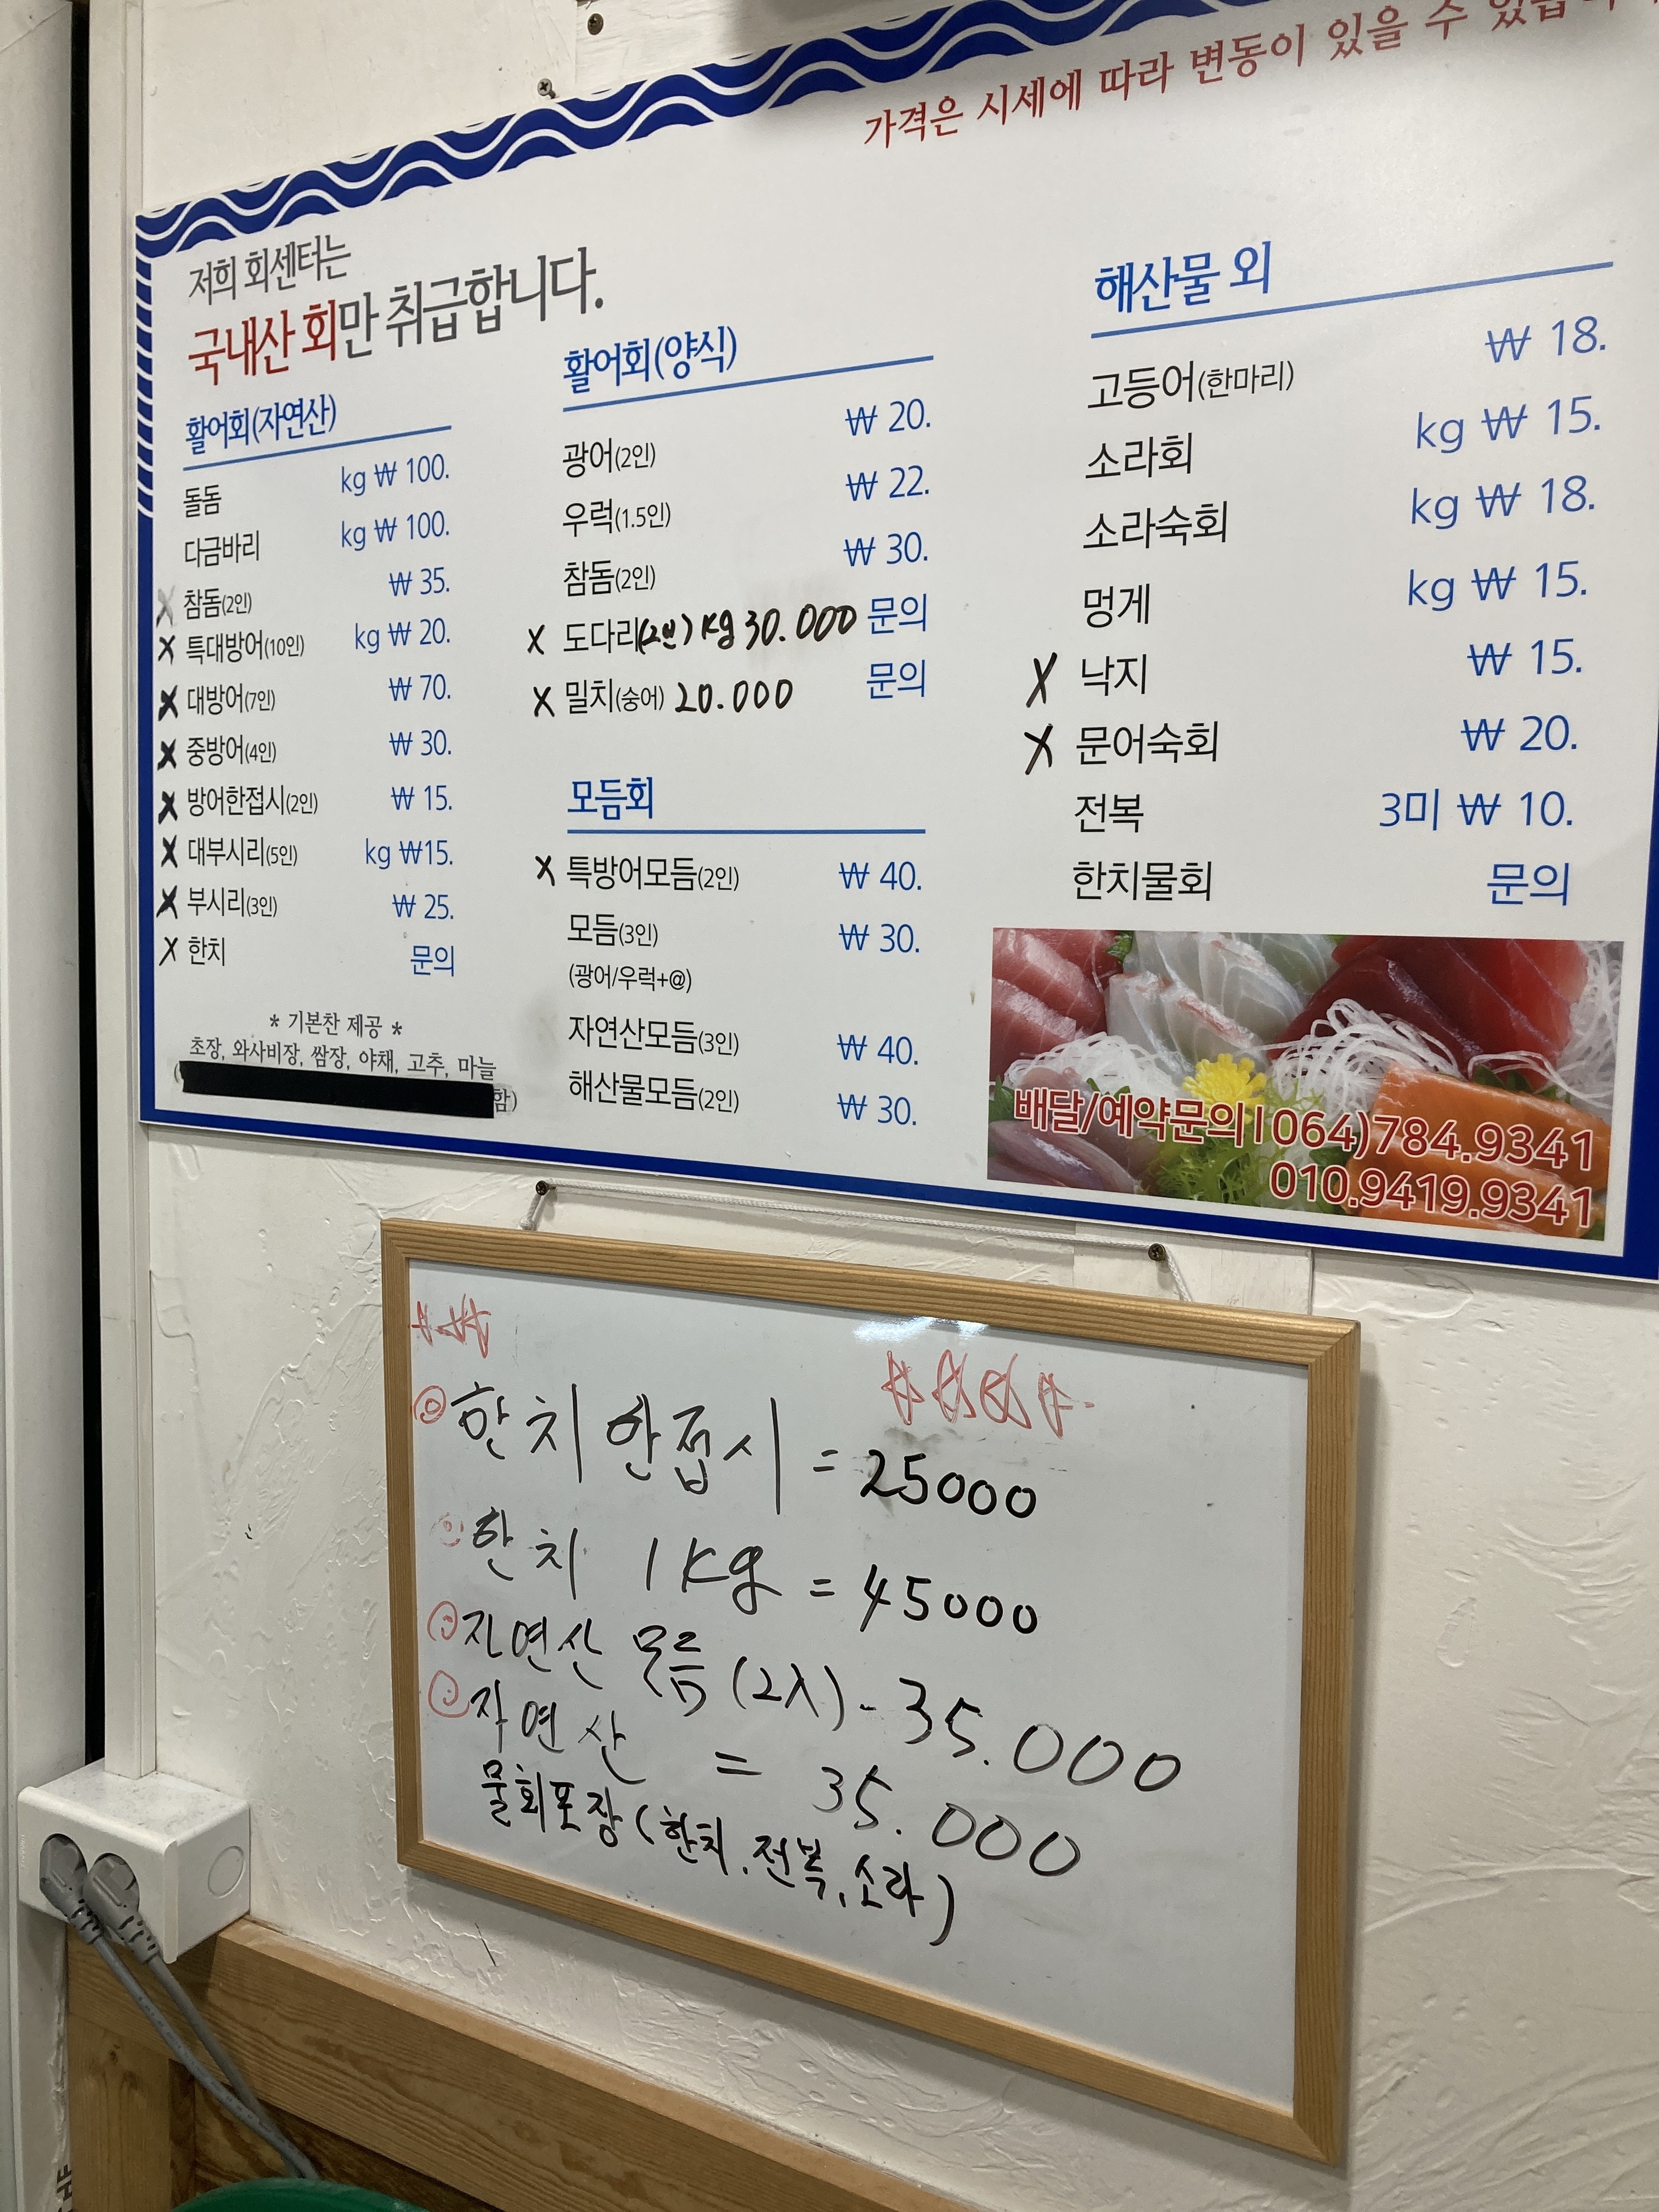 가격은 시세에 따라 변동이 있을 수 있습니
저희 회센터는
국내산 회만 취급합니다.
활어회(자연산)
돌돔 kg ₩ 100.
다금바리 kg ₩ 100.
X 참돔(2인) ₩ 35.
X 특대방어(10인) kg ₩ 20.
X 대방어(7인) ₩ 70.
X 중방어(4인) ₩ 30.
X 방어한접시(2인) ₩ 15.
X 대부시리(5인) kg ₩15.
X 부시리(3인) ₩ 25.
X 한치 문의
* 기본찬 제공 *
초장, 와사비장, 쌈장, 야채, 고추, 마늘
( 함)
활어회(양식)
광어(2인) ₩ 20.
우럭(1.5인) ₩ 22.
참돔(2인) ₩ 30.
X 도다리(2인) kg 30.000 문의
X 밀치(숭어) 20.000 문의
모듬회
X 특방어모듬(2인) ₩ 40.
모듬(3인) ₩ 30.
(광어/우럭+@)
자연산모듬(3인) ₩ 40.
해산물모듬(2인) ₩ 30.
해산물 외
고등어(한마리) ₩ 18.
소라회 kg ₩ 15.
소라숙회 kg ₩ 18.
멍게 kg ₩ 15.
X 낙지 ₩ 15.
X 문어숙회 ₩ 20.
전복 3미 ₩ 10.
한치물회 문의
배달/예약문의 | 064)784.9341
010.9419.9341
한치 한접시 = 25000
한치 1kg = 45000
자연산 모듬 (2人) - 35.000
자연산 = 35.000
물회포장 (한치, 전복, 소라)